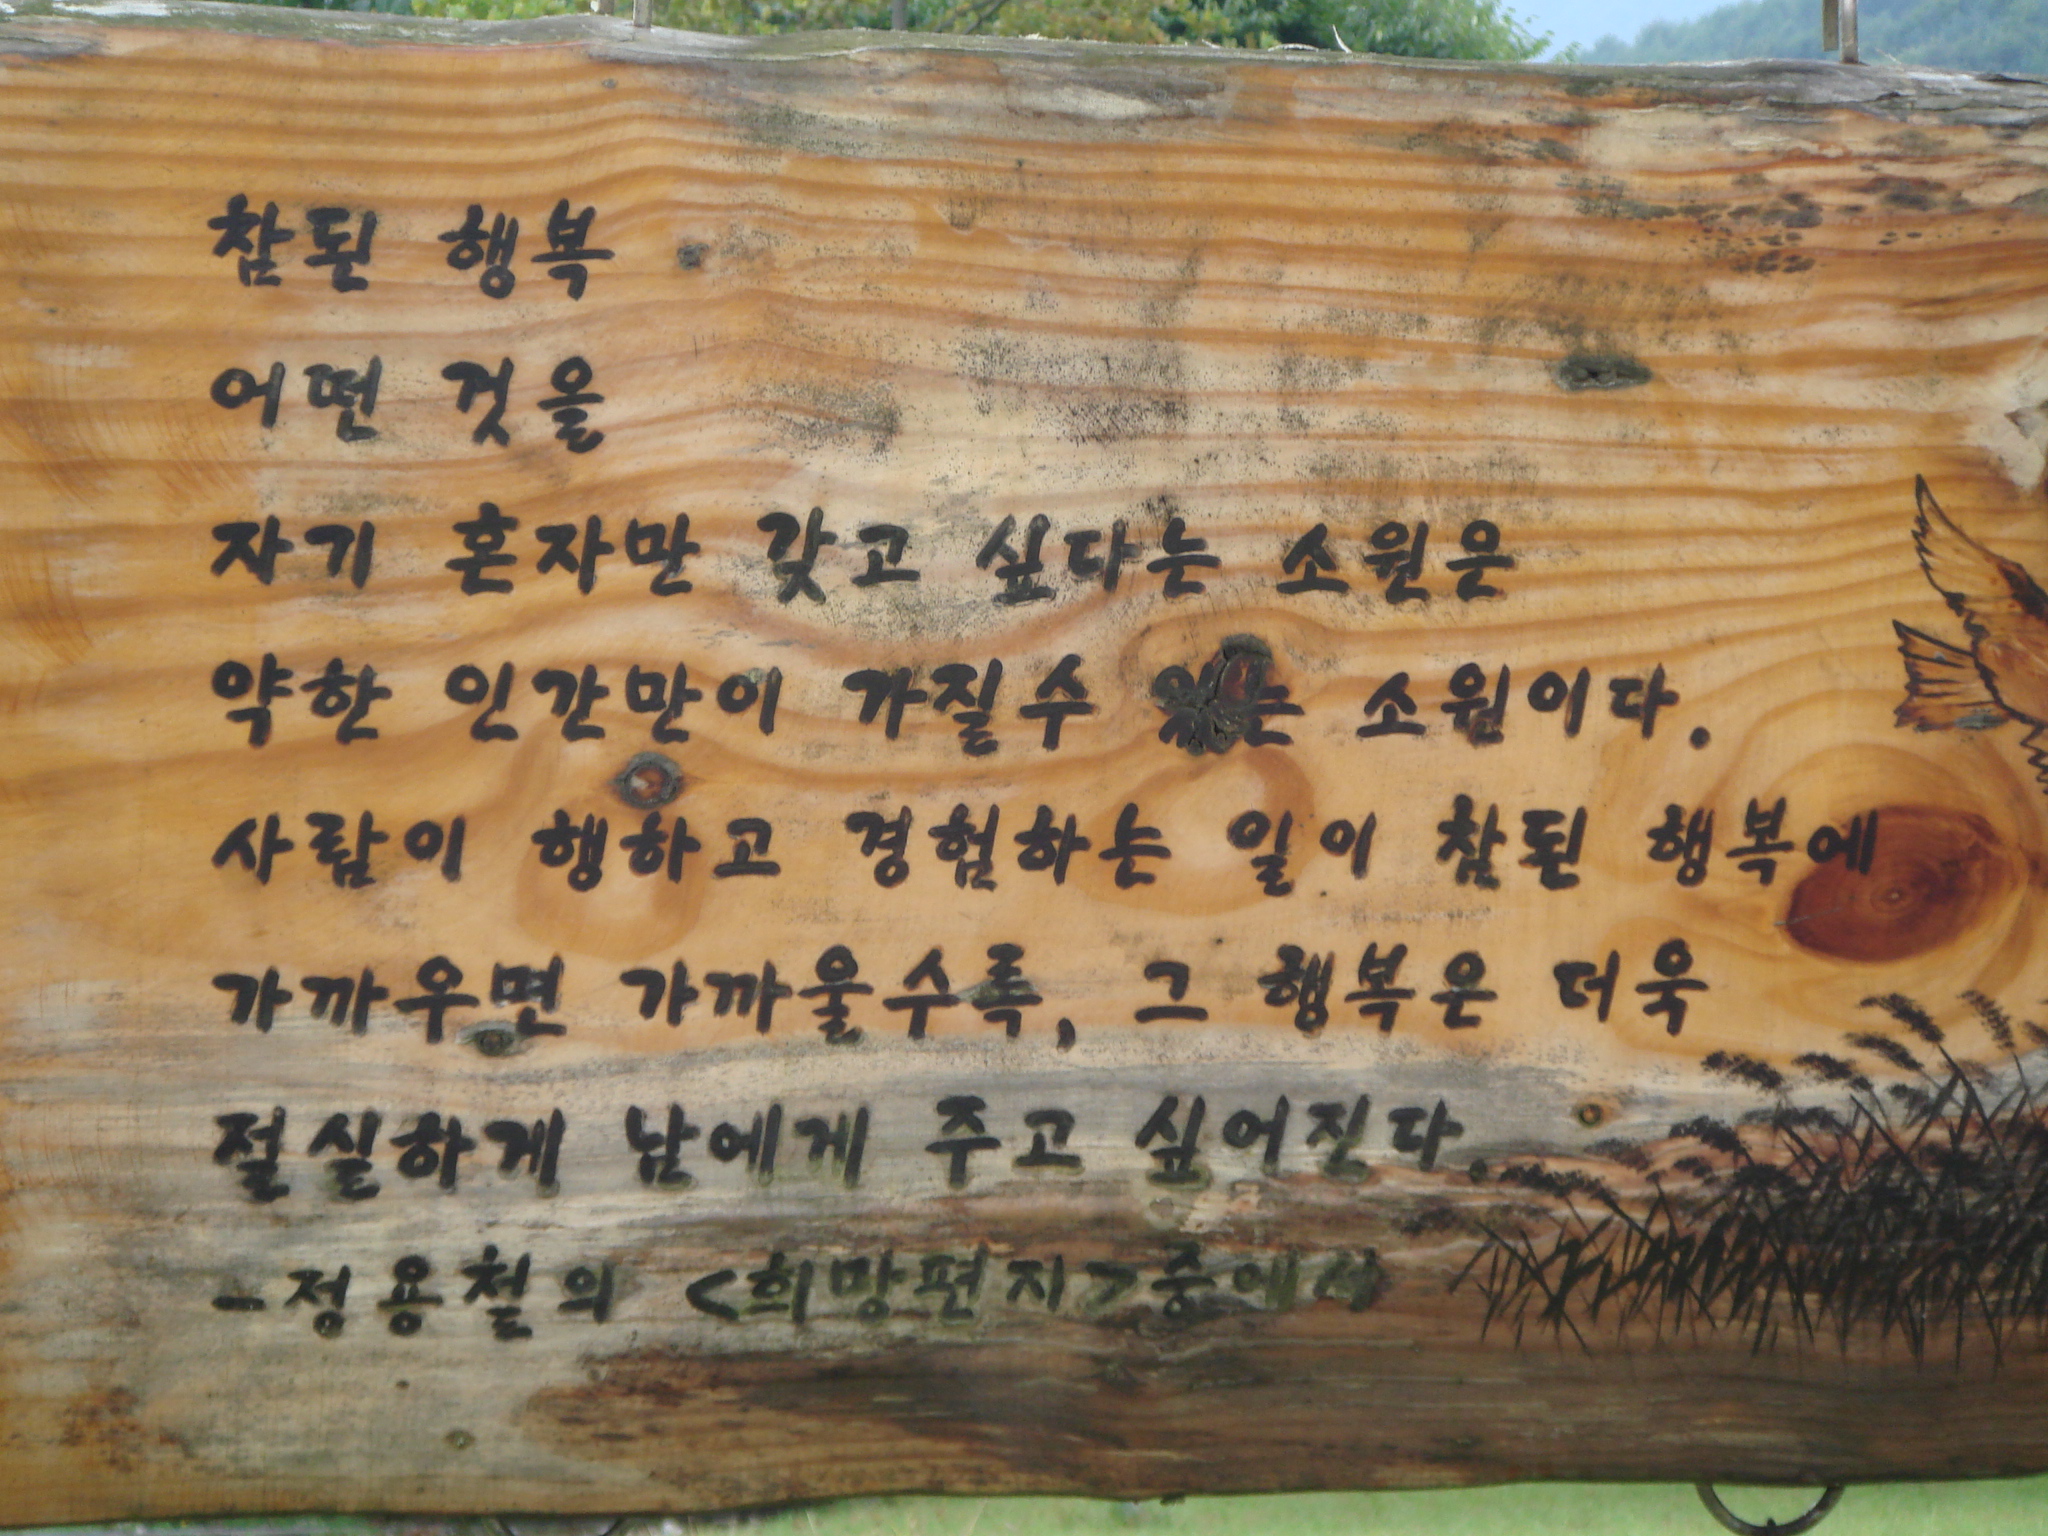 참된 행복
어떤 것을
자기 혼자만 갖고 싶다는 소원은
약한 인간만이 가질수 있는 소원이다.
사람이 행하고 경험하는 일이 참된 행복에
가까우면 가까울수록, 그 행복은 더욱
절실하게 남에게 주고 싶어진다.
-정용철의 <희망편지>중에서